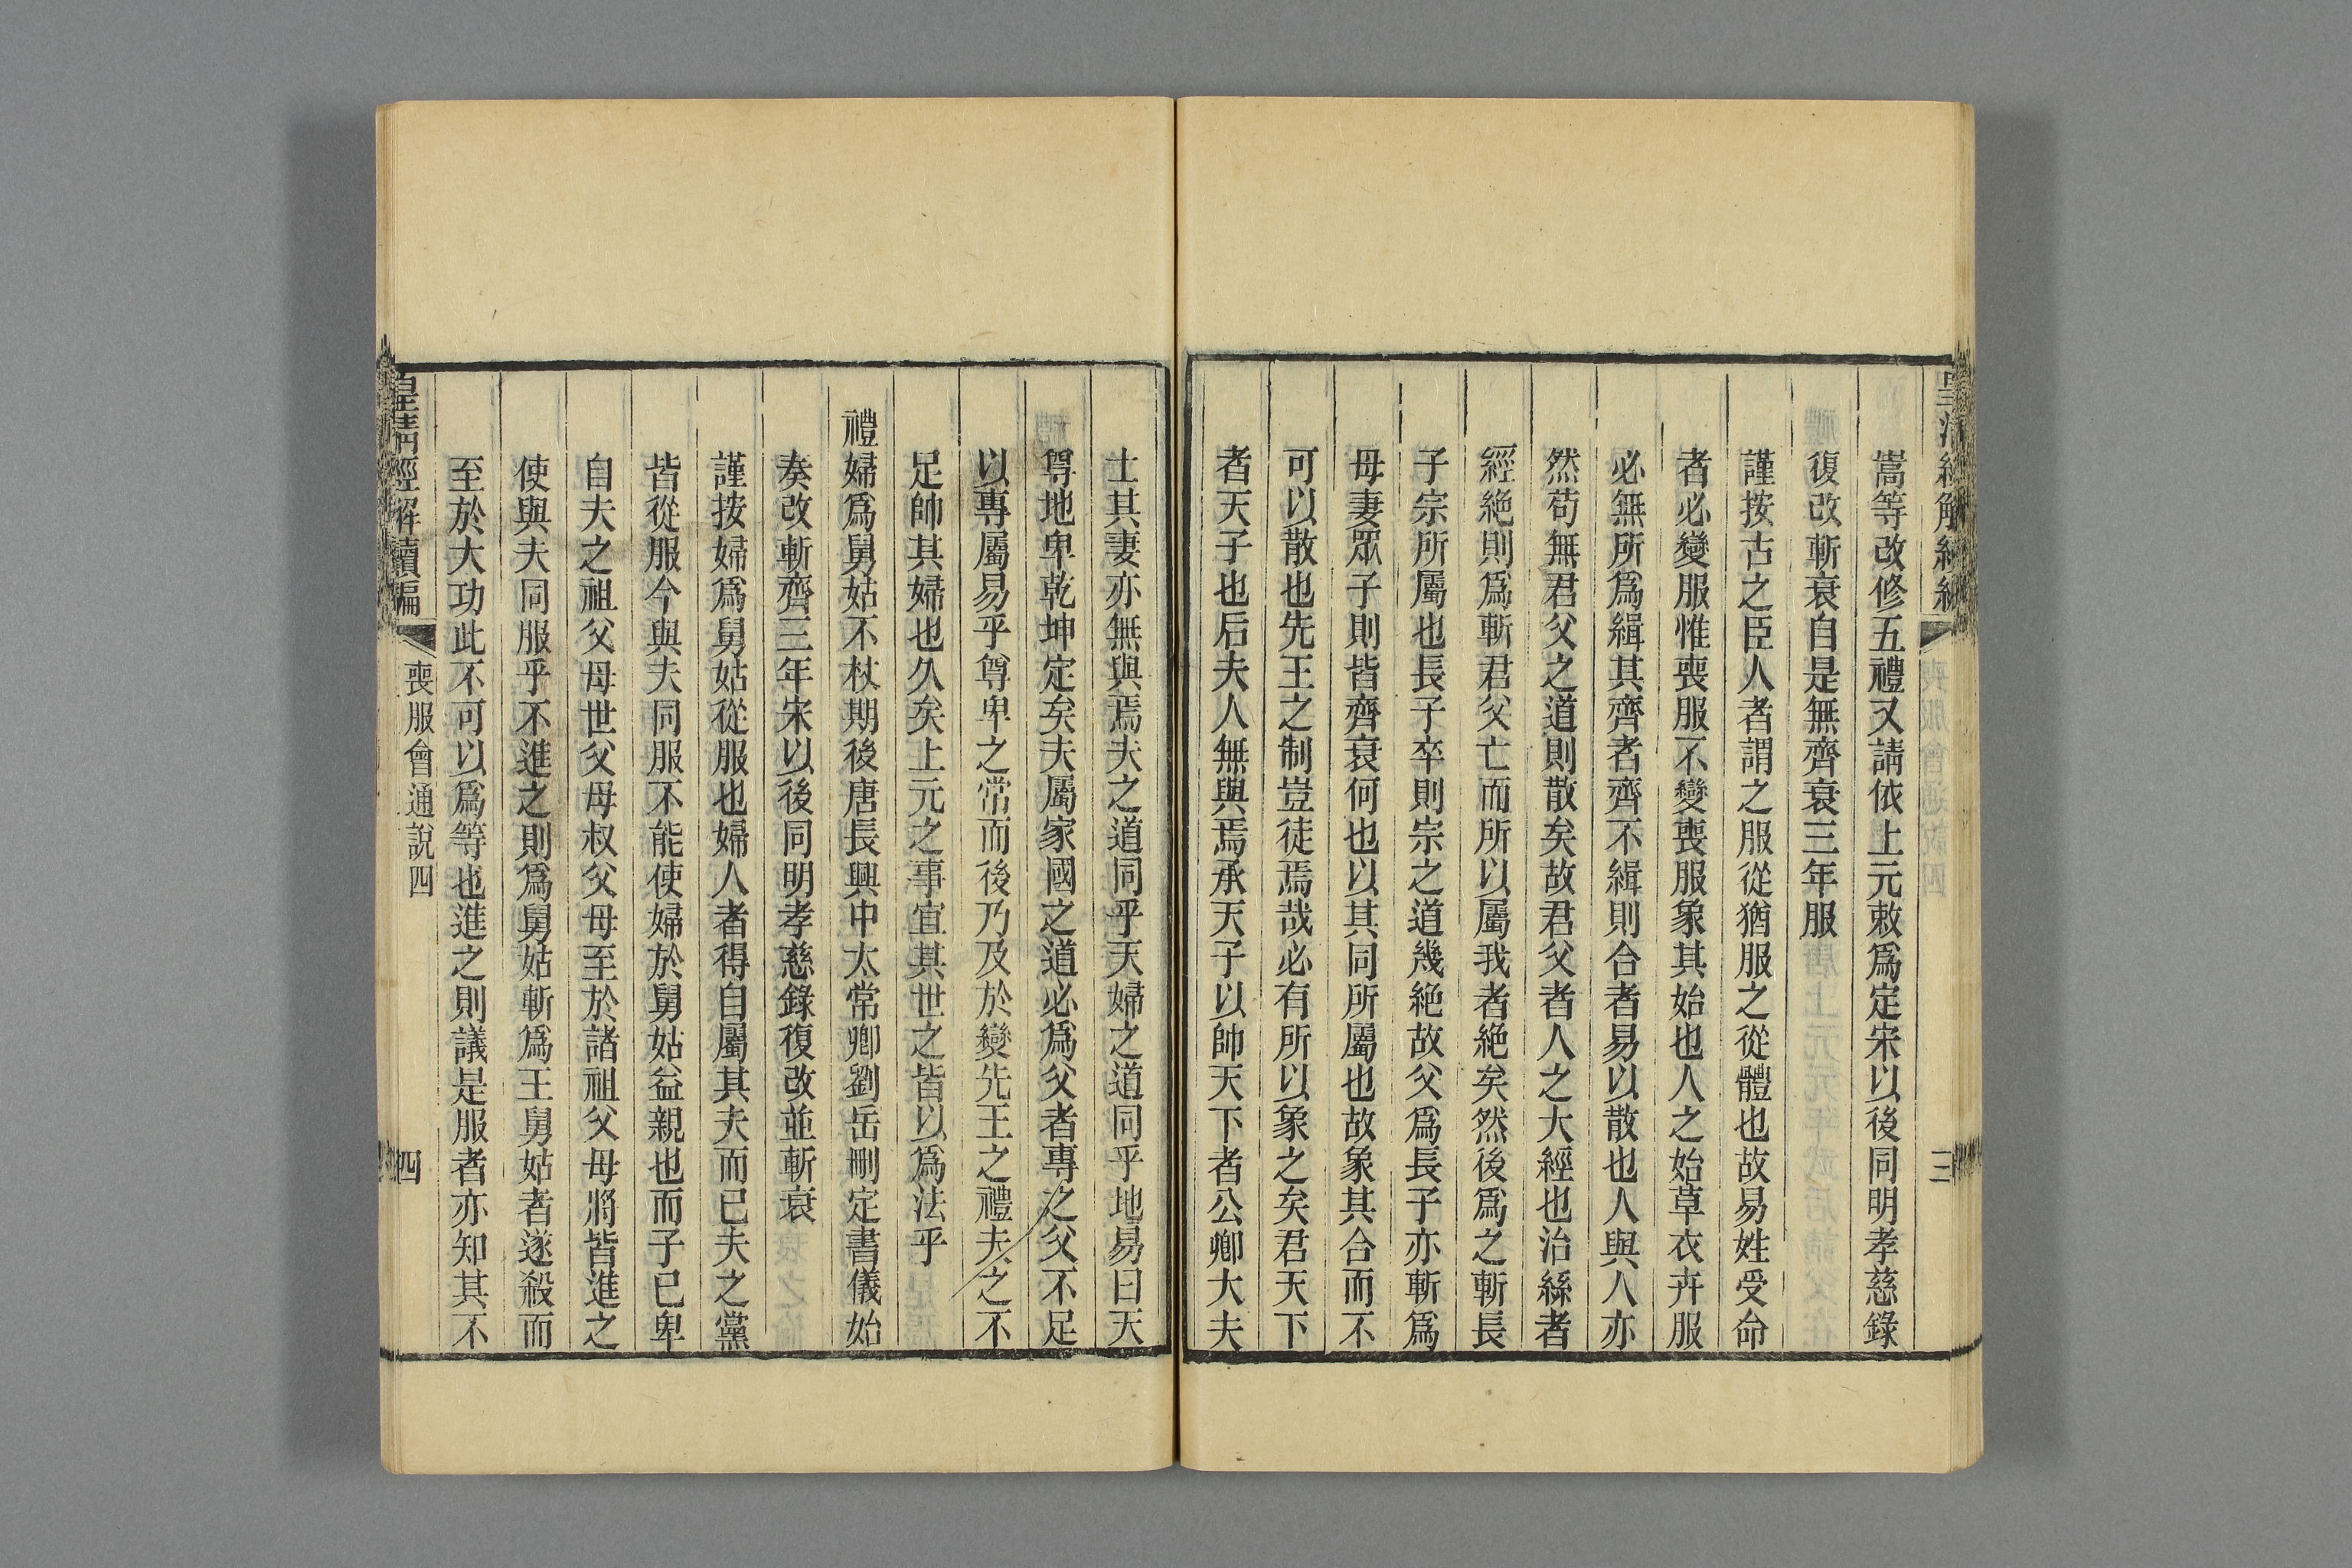 嵩等改修五禮又請依上元敕爲定宋以後同明孝慈錄
復改斬衰自是無齊衰三年服
謹按古之臣人者謂之服從猶服之從體也故易姓受命
者必變服惟喪服不變喪服象其始也人之始草衣卉服
必無所爲緝其齊者齊不緝則合者易以散也人與人亦
然苟無君父之道則散矣故君父者人之大經也治絲者
經絕則爲斬君父亡而所以屬我者絕矣然後爲之斬長
子宗所屬也長子卒則宗之道幾絕故父爲長子亦斬爲
母妻眾子則皆齊衰何也以其同所屬也故象其合而不
可以散也先王之制豈徒焉哉必有所以象之矣君天下
者天子也后夫人無與焉承天子以帥天下者公卿大夫
士其妻亦無與焉夫之道同乎天婦之道同乎地易曰天
尊地卑乾坤定矣夫屬家國之道必爲父者專之父不足
以專屬易乎尊卑之常而後乃及於變先王之禮夫之不
足帥其婦也久矣上元之事宜其世之皆以爲法乎
禮婦爲舅姑不杖期後唐長興中太常卿劉岳刪定書儀始
奏改斬齊三年宋以後同明孝慈錄復改並斬衰
謹按婦爲舅姑從服也婦人者得自屬其夫而已夫之黨
皆從服今與夫同服不能使婦於舅姑益親也而子已卑
自夫之祖父母世父母叔父母至於諸祖父母將皆進之
使與夫同服乎不進之則爲舅姑斬爲王舅姑者遂殺而
至於大功此不可以爲等也進之則議是服者亦知其不
皇清經解續編
喪服會通說四
四
三